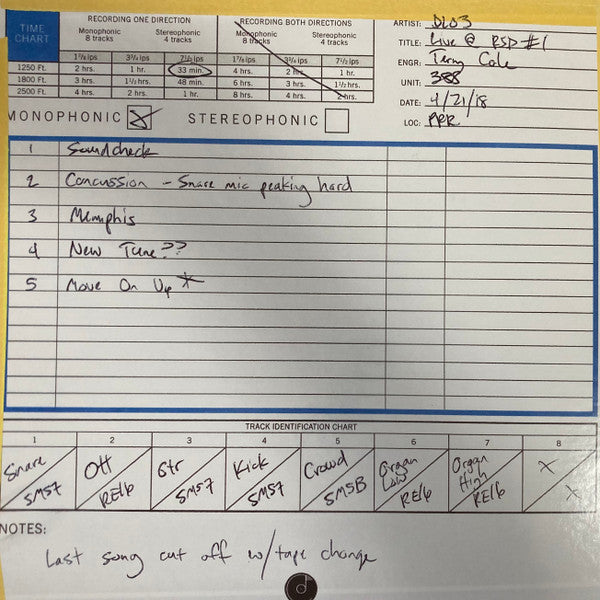 TIME CHART
RECORDING ONE DIRECTION
RECORDING BOTH DIRECTIONS
Monophonic 8 tracks
Stereophonic 4 tracks
Monophonic 8 tracks
Stereophonic 4 tracks
1⅞ ips 3¾ ips 7½ ips 1⅞ ips 3¾ ips 7½ ips
1250 Ft. 2 hrs. 1 hr. 33 min. 4 hrs. 2 hrs. 1 hr.
1800 Ft. 3 hrs. 1½ hrs. 48 min. 6 hrs. 3 hrs. 1½ hrs.
2500 Ft. 4 hrs. 2 hrs. 1 hr. 8 hrs. 4 hrs. 2 hrs.
ARTIST: DLO3
TITLE: Live @ RSD #1
ENGR: Terry Cole
UNIT: 388
DATE: 4/21/18
LOC:
MONOPHONIC STEREOPHONIC
1 Soundcheck
2 Concussion - Snare mic peaking hard
3 Memphis
4 New Tune??
5 Move On Up *
TRACK IDENTIFICATION CHART
1 2 3 4 5 6 7 8
Snare OH Gtr Kick Crowd Organ Low Organ High X
SM57 RE16 SM57 SM57 SM58 RE16 RE16 X
NOTES:
Last song cut off w/tape change